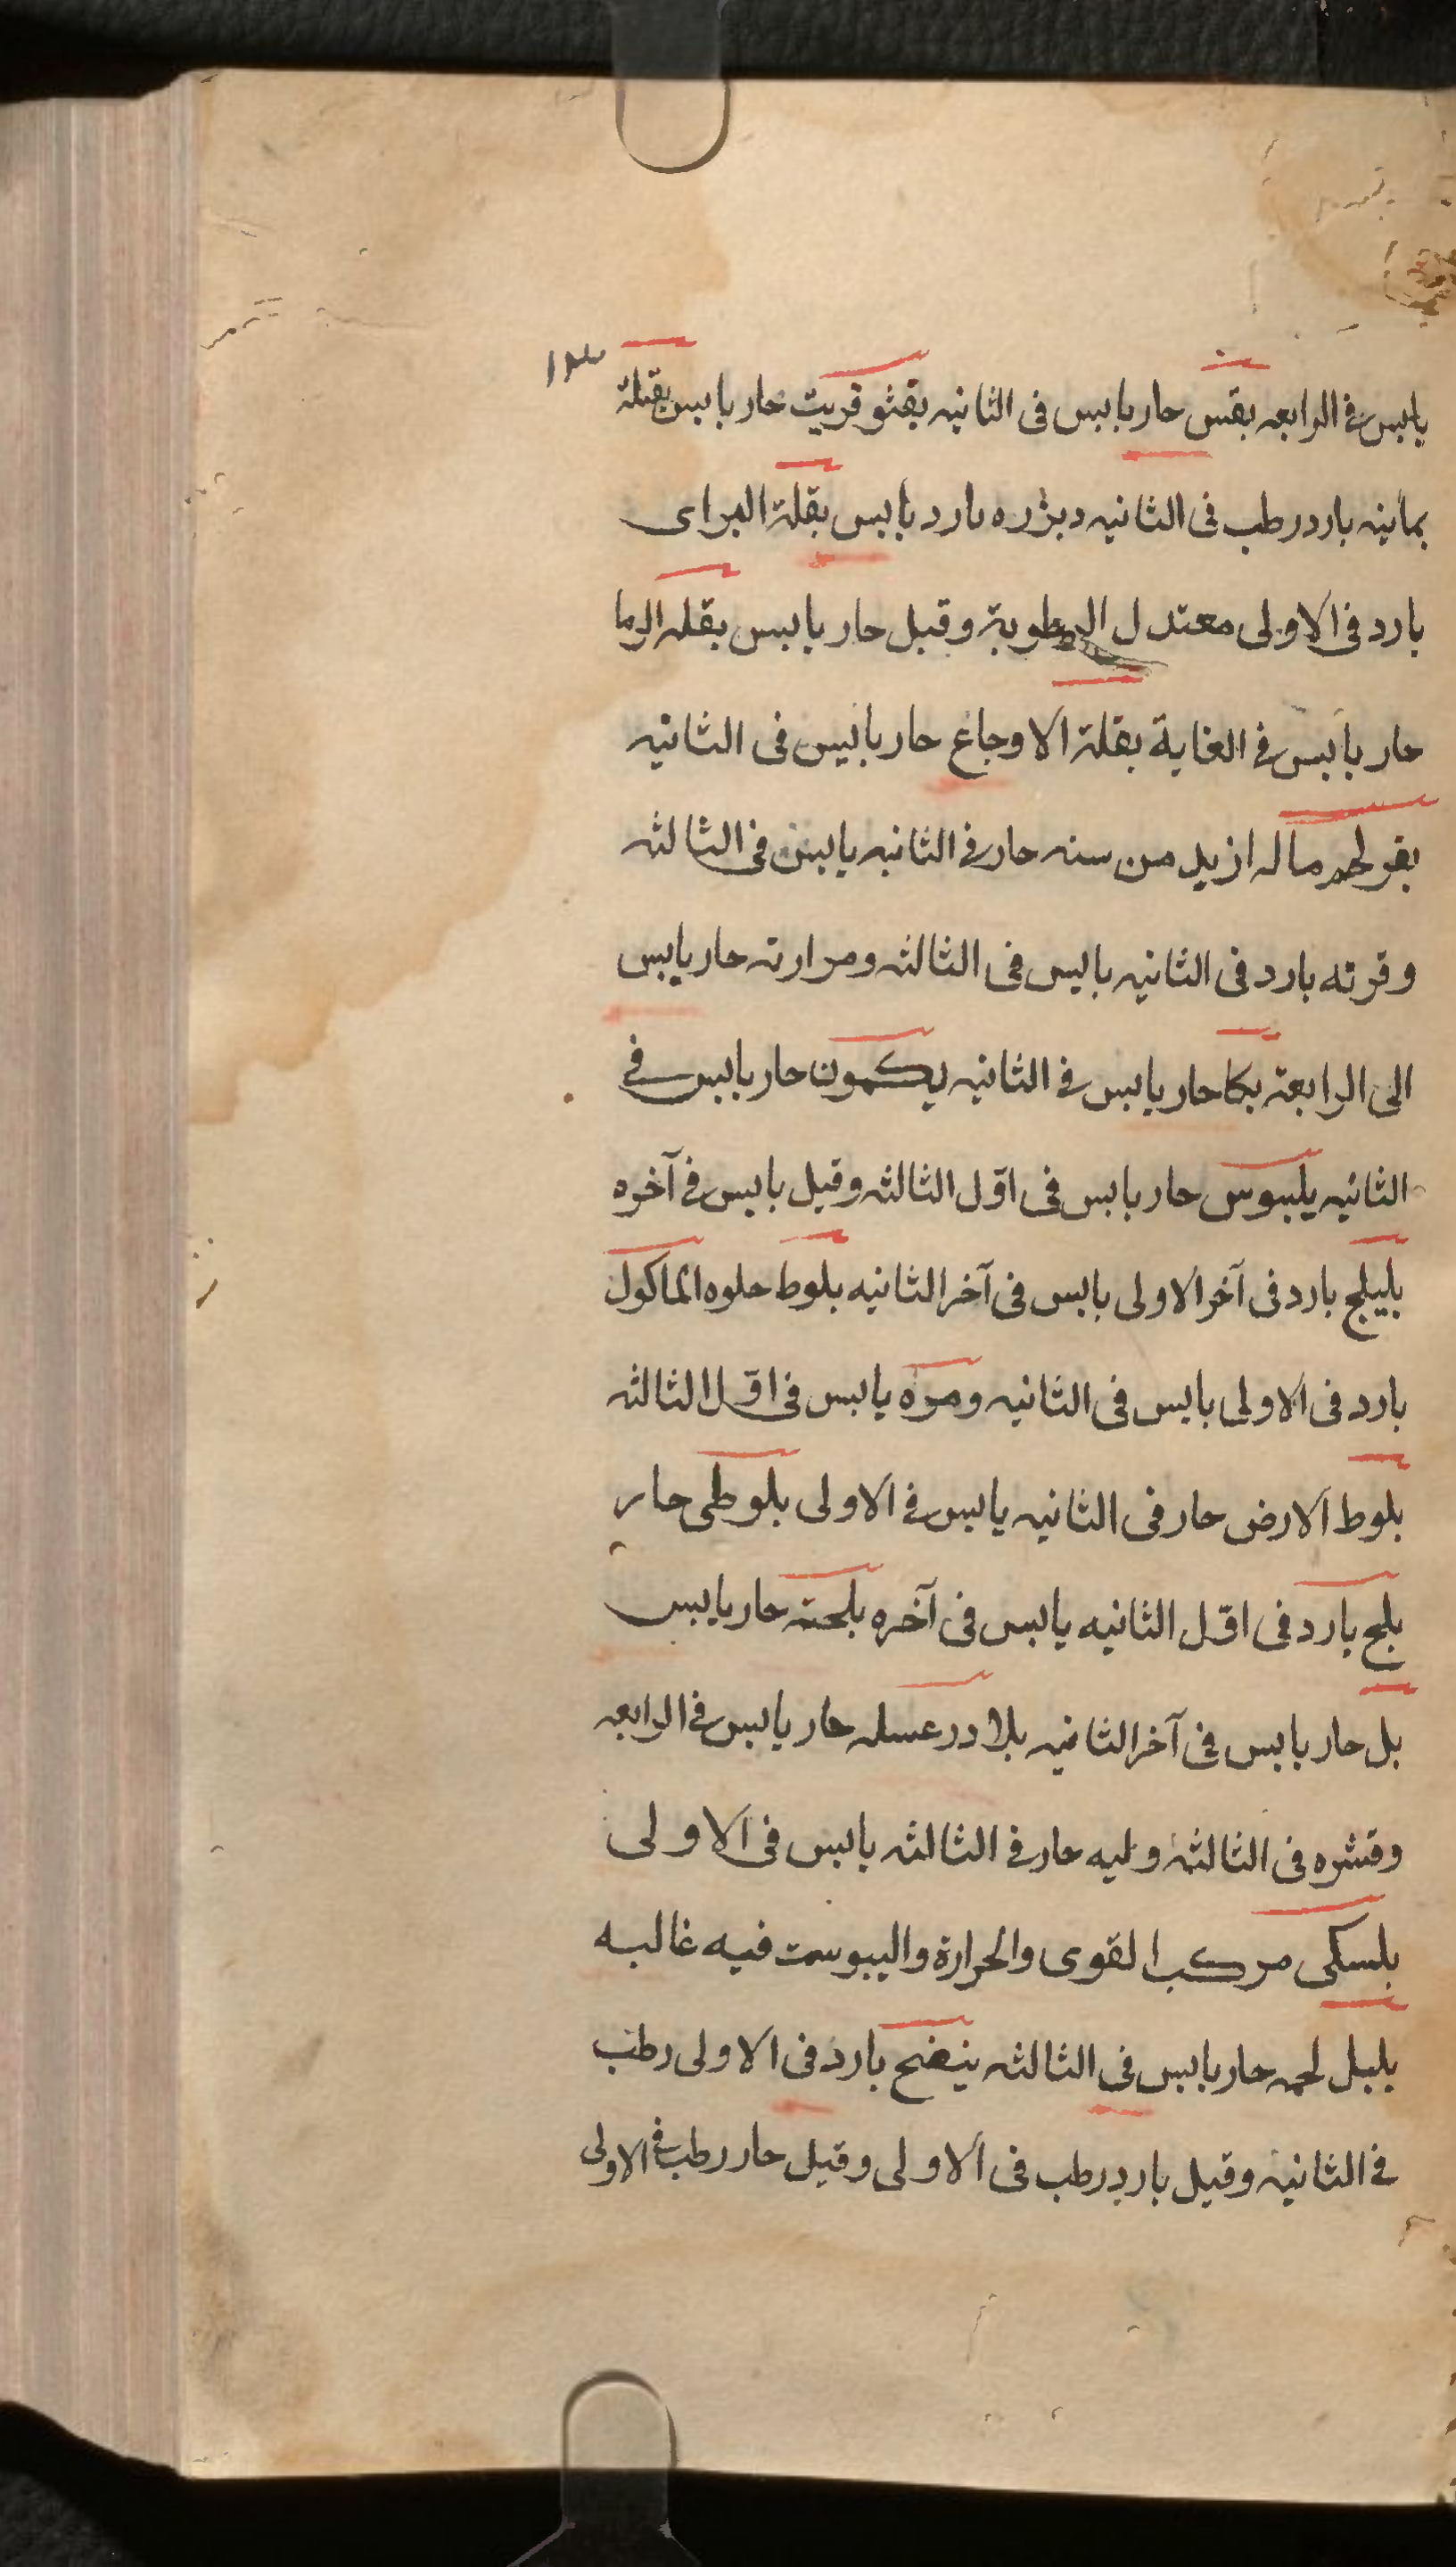 ١٣
يابس في الرابعه بقس حار يابس في الثانيه بقثو قريت حار يابس بقلة
يمانيه بارد رطب في الثانيه وبزره بارد يابس بقلة البراى
بارد في الاولى معتدل الرطوبة وقيل حار يابس بقله الرما
حار يابس في الغاية بقلة الاوجاع حار يابس في الثانيه
بقر لحم ماله ازيد من سنه حار في الثانيه يابس في الثالثه
وقرنه بارد في الثانيه يابس في الثالثه ومرارته حار يابس
الى الرابعة بكا حار يابس في الثانيه يكمون حار يابس في
الثانيه بلبوس حار يابس في اوّل الثالثه وقيل يابس في آخره
بليلج بارد في آخر الاولى يابس في آخر الثانيه بلوط حلوه الماكول
بارد في الاولى يابس في الثانيه ومره يابس في اوّل الثالثه
بلوط الارض حار في الثانيه يابس في الاولى بلوطى حار
بلح بارد في اوّل الثانيه يابس في آخره بلحته حار يابس
بل حار يابس في آخر الثانيه بلادر عسله حار يابس في الرابعه
وقشره في الثالثة ولبه حار في الثالثه يابس في الاولى
بلسكى مركب القوى والحرارة واليبوست فيه غالبه
بلبل لحمه حار يابس في الثالثه بنفسج بارد في الاولى رطب
في الثانية وقيل بارد رطب في الاولى وقيل حار رطب في الاولى